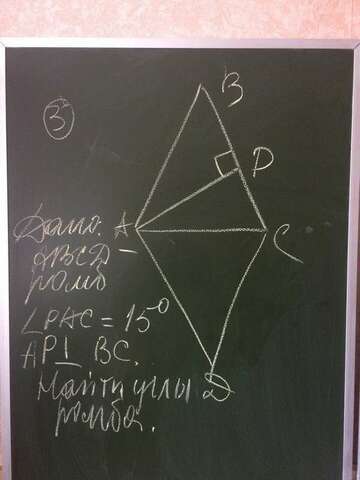 ③
B
P
A
C
D
Дано:
ABCD –
ромб
∠PAC = 15°
AP⊥ BC.
Найти углы
ромба.